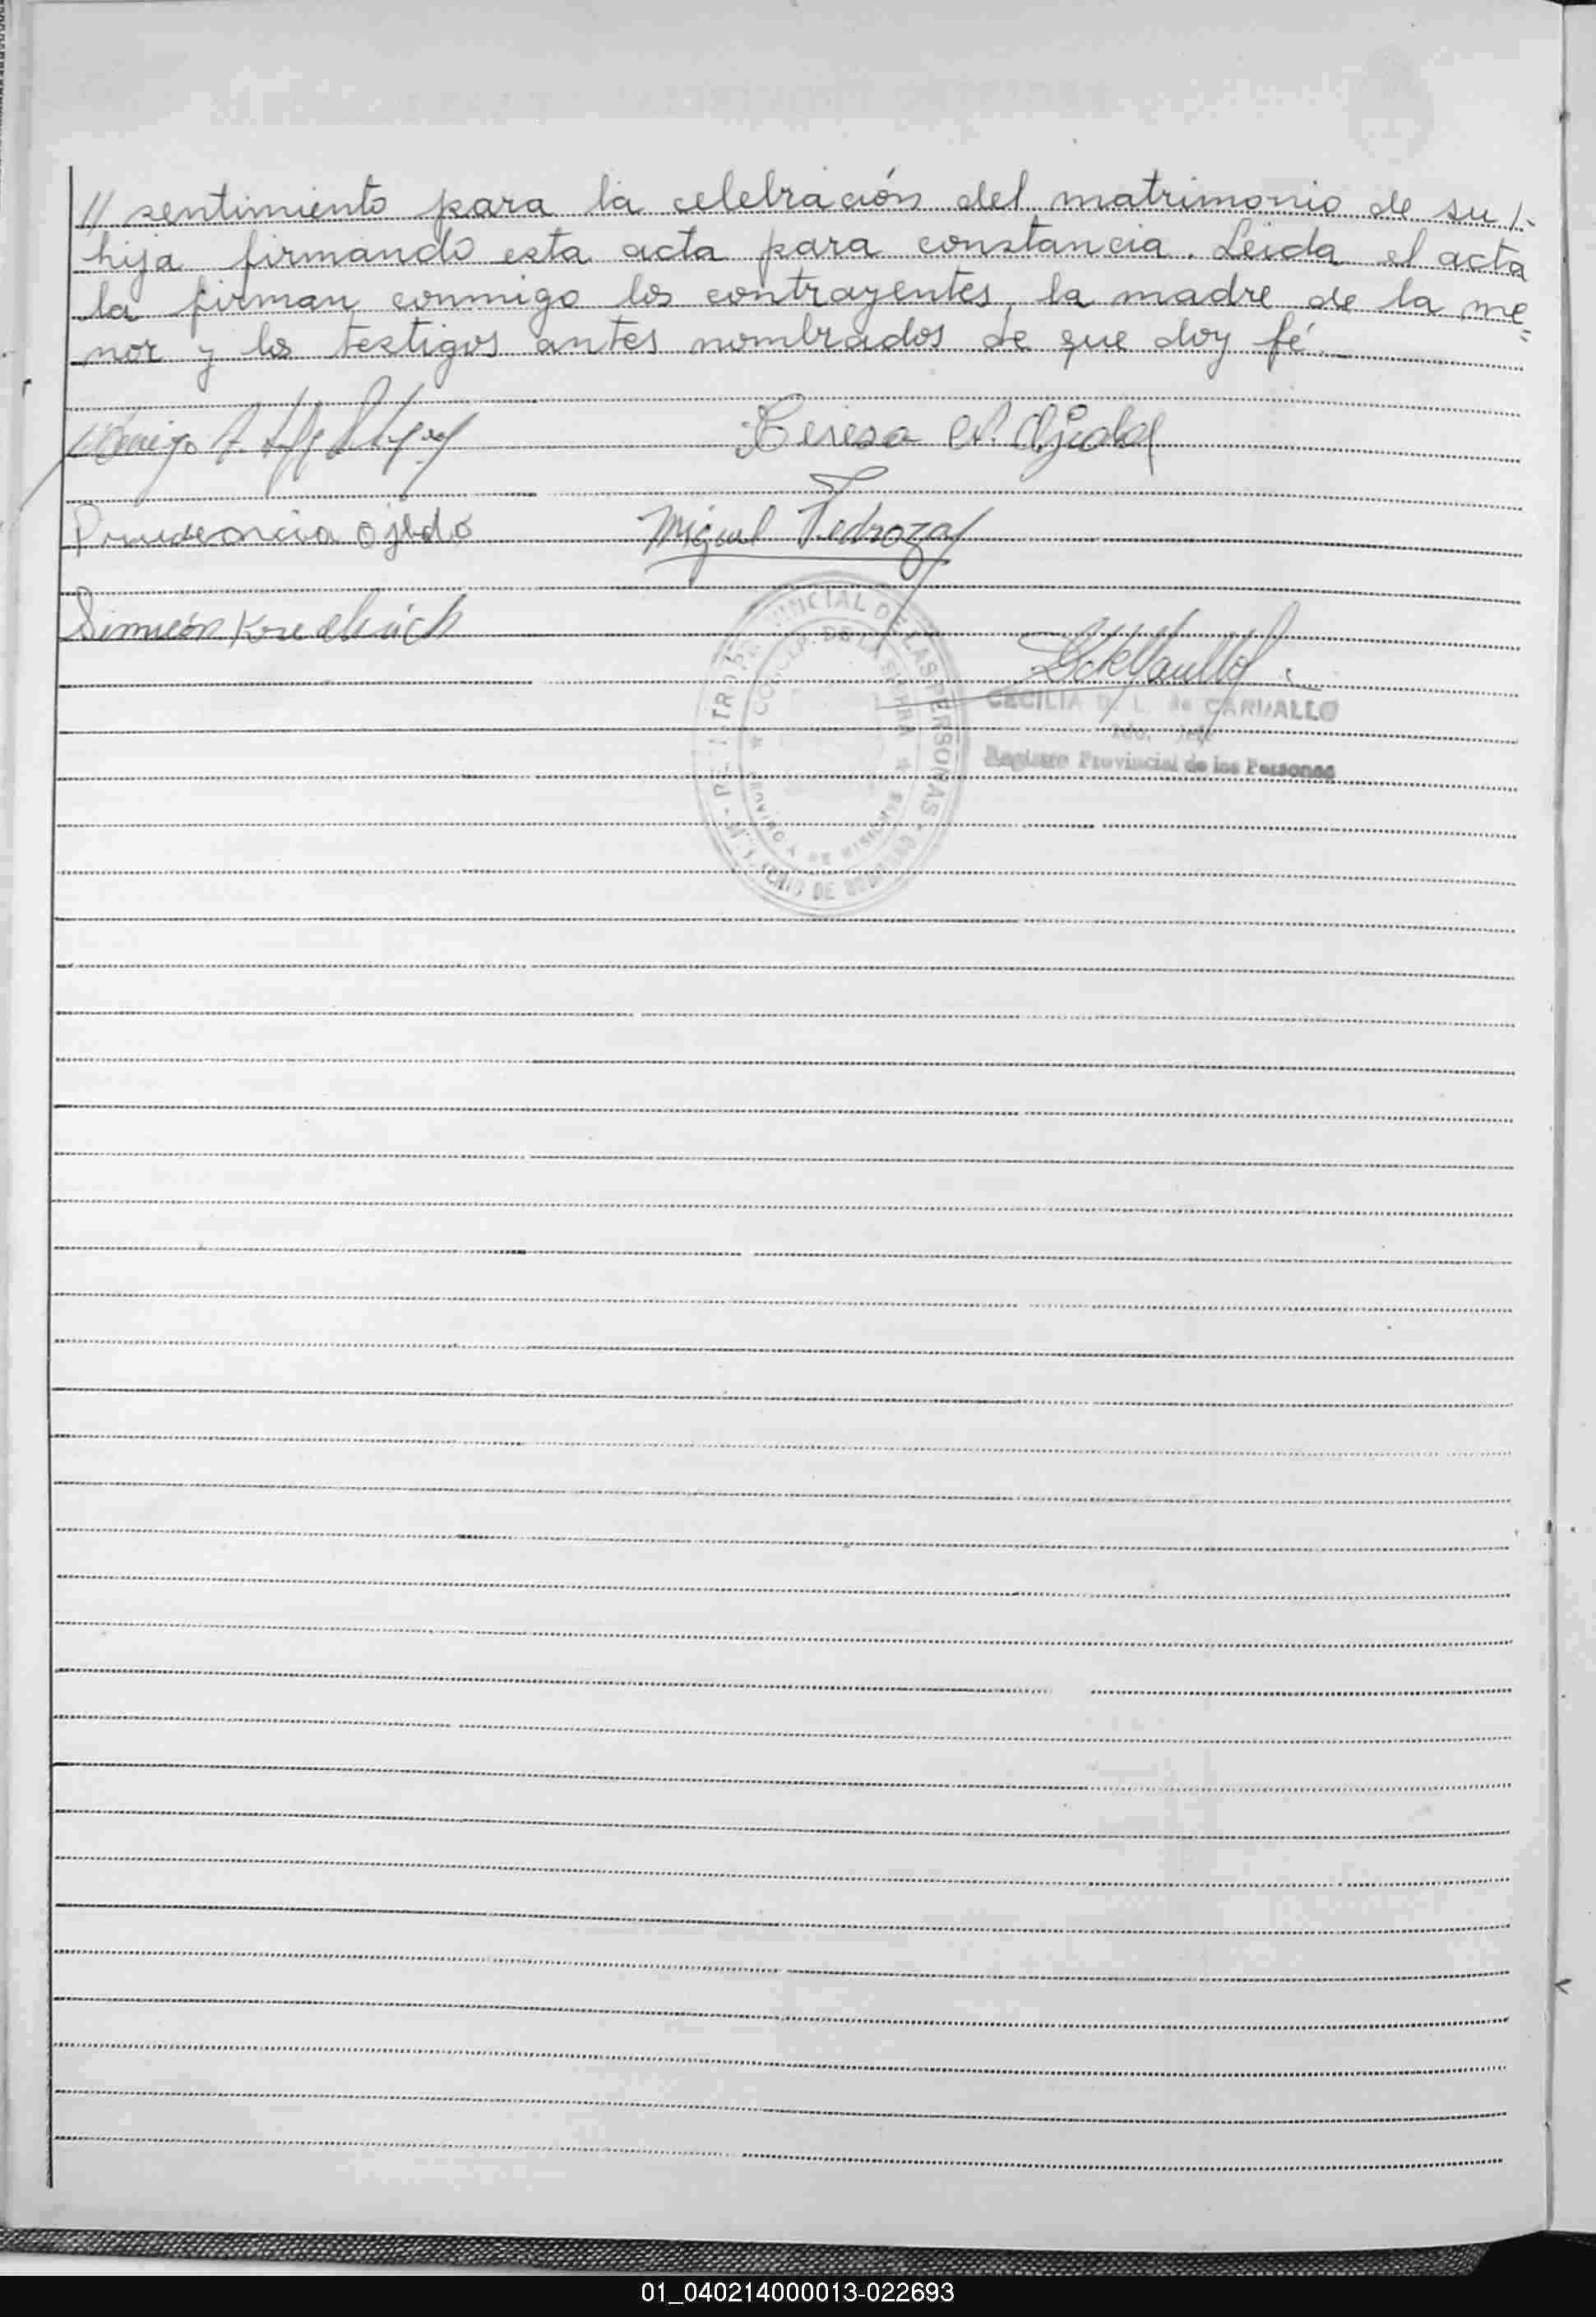 // sentimiento para la celebración del matrimonio de su /.
hija firmando esta acta para constancia. Leida el acta
la firman conmigo los contrayentes, la madre de la me=
nor y los testigos antes nombrados de que doy fé.
Teresa Ojeda
Prudencia Ojeda
Miguel Pedroza
Simeón
CECILIA D. L. de CARVALLO
2do. Jefe
Registro Provincial de las Personas
PROVINCIAL DE LAS PERSONAS
CONCEP. DE LA SIERRA
01_040214000013-022693